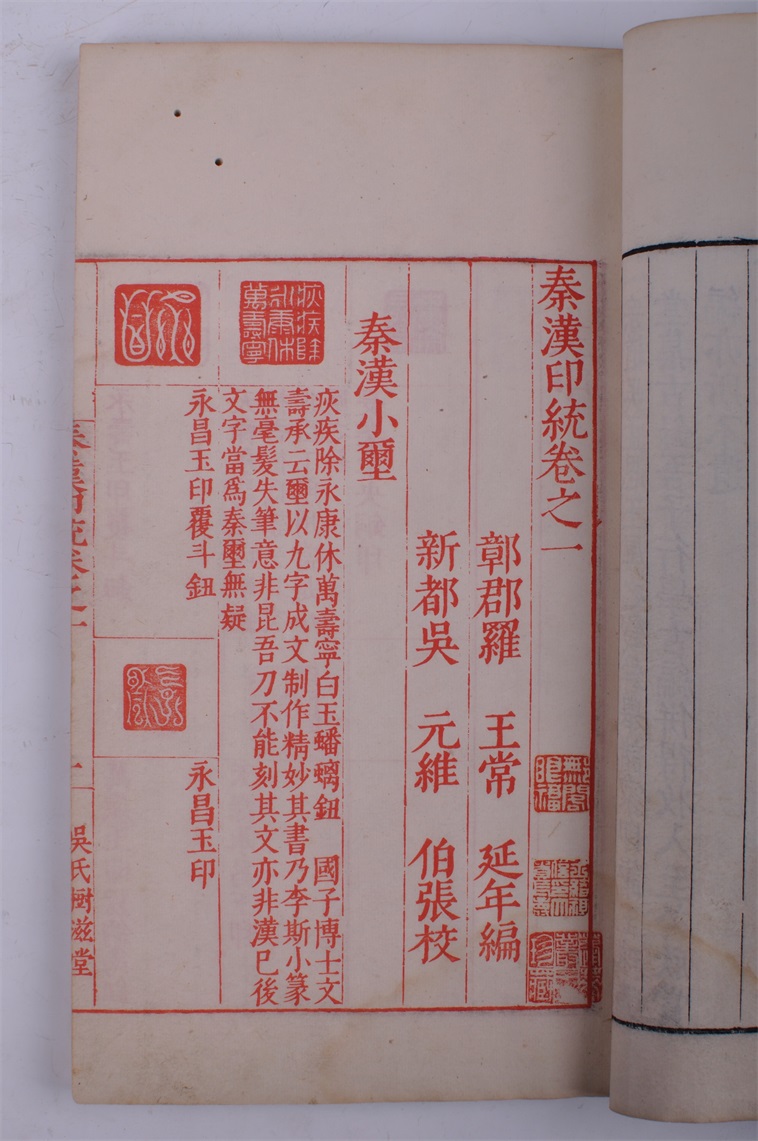 秦漢印統卷之一
鄣郡羅 王常 延年編
新都吳 元維 伯張校
秦漢小璽
疢疾除永康休萬壽寧
疢疾除永康休萬壽寧白玉蟠螭鈕 國子博士文
壽承云璽以九字成文制作精妙其書乃李斯小篆
無毫髮失筆意非昆吾刀不能刻其文亦非漢已後
文字當爲秦璽無疑
永昌
永昌玉印覆斗鈕
永昌
永昌玉印
秦漢印統卷之一
一
吳氏樹滋堂